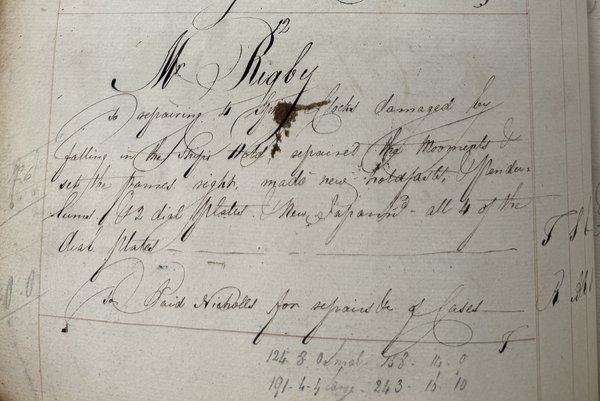 12
Mr Rigby
To repairing 4 Clocks damaged by
falling in the Ships Hold, repaired the Movments &
set the frames right, made new holdfasts, & Pendu-
lums. & 2 dial Plates. New Japann'd all 4 of the
dial plates
To Paid Nicholls for repairs &c of Cases
124 8 0 158 14 0
191 4 4 large 243 15 10